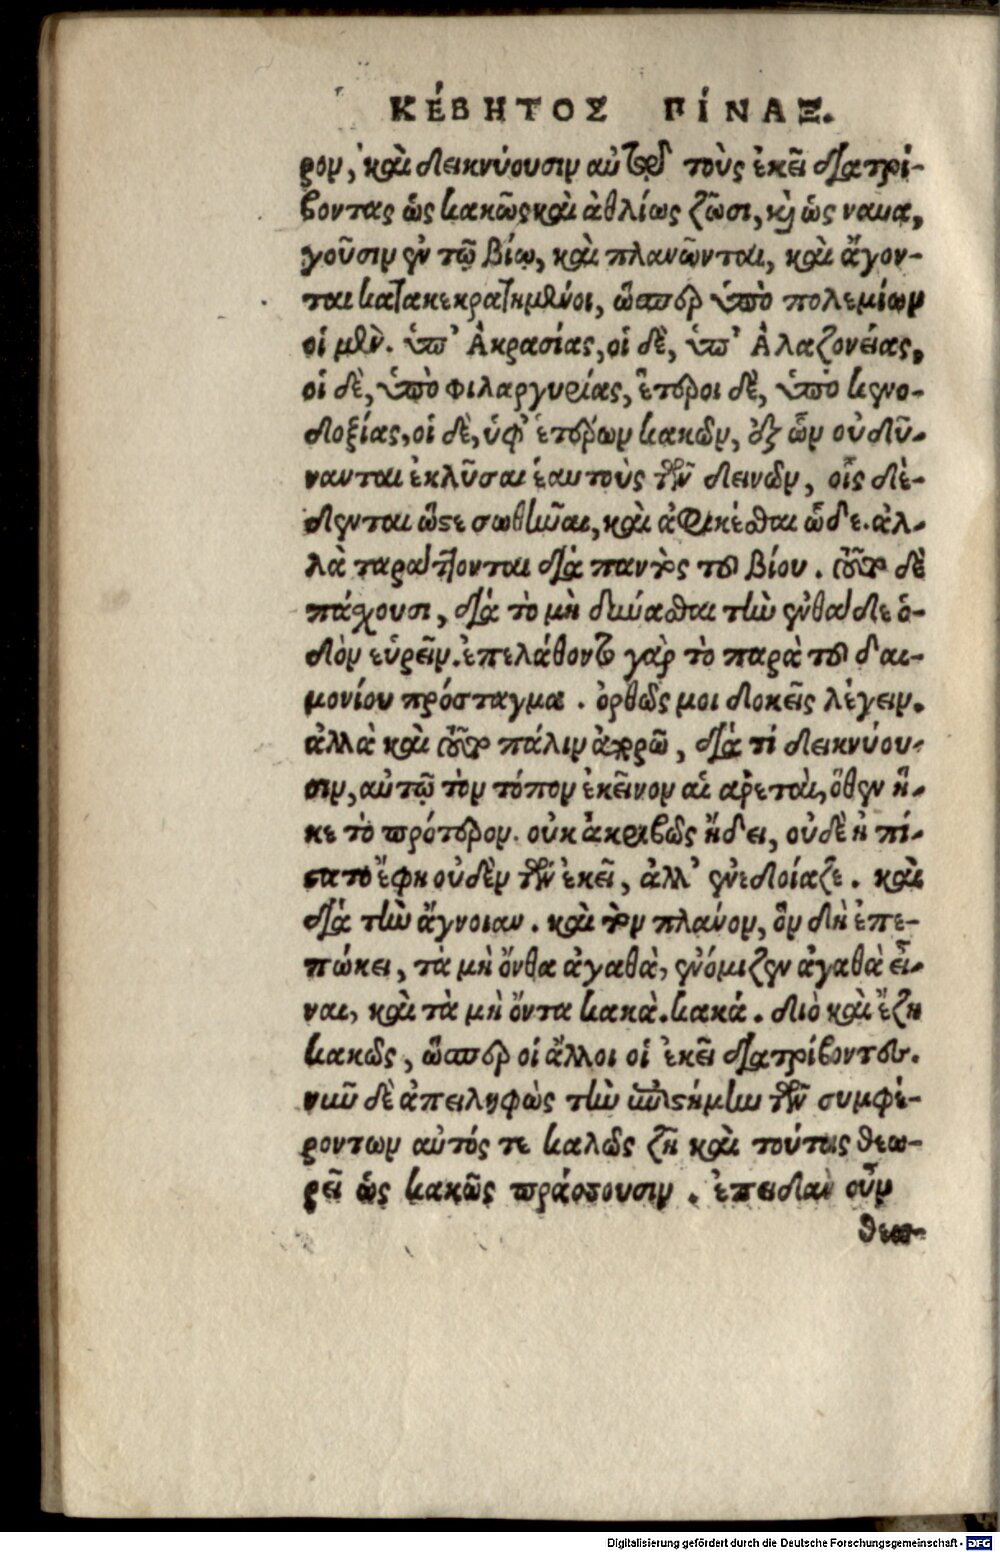 ΚΈΒΗΤΟΣ ΠΊΝΑΞ.
ρον, καὶ δεικνύουσιν αὐτῷ τοὺς ἐκεῖ διατρί-
βοντας ὡς κακῶς καὶ ἀθλίως ζῶσι, κ̀ ὡς ναυα,
γοῦσιν ἐν τῷ βίῳ, καὶ πλανῶνται, καὶ ἄγον-
ται κατακεκρατημένοι, ὥσπερ ὑπὸ πολεμίων
οἱ μὲν. ὑπ' Ἀκρασίας, οἱ δὲ, ὑπ' Ἀλαζονείας,
οἱ δὲ, ὑπὸ φιλαργυρίας, ἕτεροι δὲ, ὑπὸ κενο-
δοξίας, οἱ δὲ, ὑφ' ἑτέρων κακῶν, ἐξ ὧν οὐ δύ-
νανται ἐκλῦσαι ἑαυτοὺς τῶν δεινῶν, οἷς δέ-
δενται ὥστε σωθῆναι, καὶ ἀφικέσθαι ὧδε. ἀλ-
λὰ ταράττονται διὰ παντὸς τοῦ βίου. τοῦτο δὲ
πάσχουσι, διὰ τὸ μὴ δύνασθαι τὴν ἐνθάδε ὁ-
δὸν εὑρεῖν. ἐπελάθοντο γὰρ τὸ παρὰ τοῦ δαι-
μονίου πρόσταγμα. ὀρθῶς μοι δοκεῖς λέγειν.
ἀλλὰ καὶ τοῦτο πάλιν ἀπορῶ, διὰ τί δεικνύου-
σιν, αὐτῷ τὸν τόπον ἐκεῖνον αἱ ἀρεταὶ, ὅθεν ἥ-
κε τὸ πρότερον. οὐκ ἀκριβῶς ᾔδει, οὐδὲ ἠπί-
στατο ἔφη οὐδὲν τῶν ἐκεῖ, ἀλλ' ἐνεδοίαζε. καὶ
διὰ τὴν ἄγνοιαν. καὶ τὸν πλάνον, ὃν δὴ ἐπε-
πώκει, τὰ μὴ ὄνθα ἀγαθὰ, ἐνόμιζεν ἀγαθὰ εἶ-
ναι, καὶ τὰ μὴ ὄντα κακὰ. κακά. διὸ καὶ ἔζη
κακῶς, ὥσπερ οἱ ἄλλοι οἱ ἐκεῖ διατρίβοντες.
νῦν δὲ ἀπειληφὼς τὴν ἐπιστήμην τῶν συμφε-
ρόντων αὐτός τε καλῶς ζῇ καὶ τούτους θεω-
ρεῖ ὡς κακῶς πράσσουσιν. ἐπειδὰν οὖν
θεω-
Digitalisierung gefördert durch die Deutsche Forschungsgemeinschaft - DFG